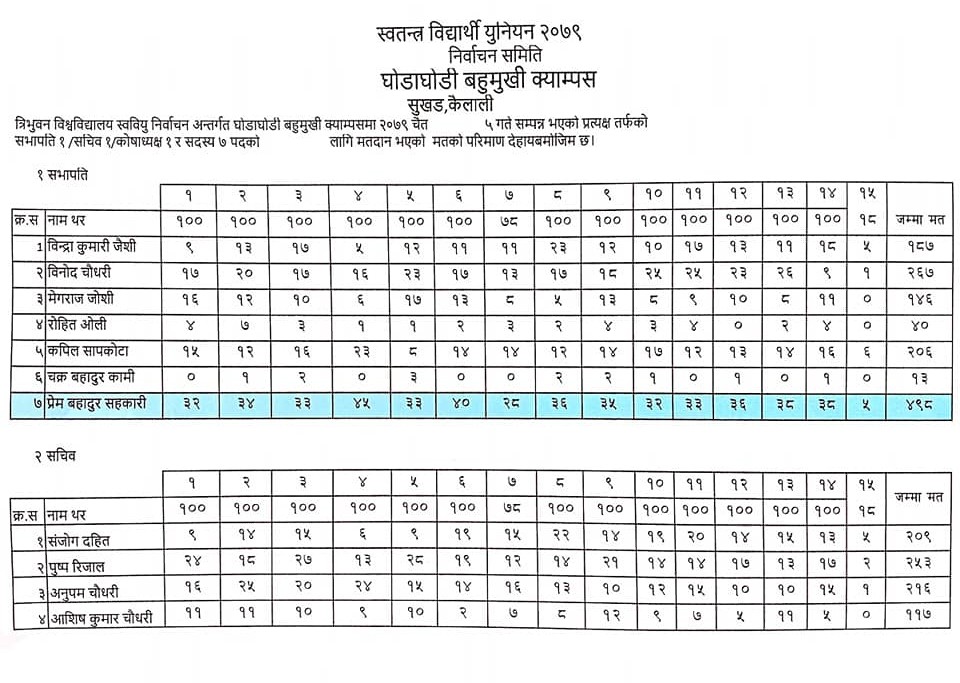 स्वतन्त्र विद्यार्थी युनियन २०७९
निर्वाचन समिति
घोडाघोडी बहुमुखी क्याम्पस
सुखड,कैलाली
त्रिभुवन विश्वविद्यालय स्ववियु निर्वाचन अन्तर्गत घोडाघोडी बहुमुखी क्याम्पसमा २०७९ चैत ५ गते सम्पन्न भएको प्रत्यक्ष तर्फको
सभापति १ /सचिव १/कोषाध्यक्ष १ र सदस्य ७ पदको लागि मतदान भएको मतको परिमाण देहायबमोजिम छ।
१ सभापति
१ २ ३ ४ ५ ६ ७ ८ ९ १० ११ १२ १३ १४ १५
क्र.स नाम थर १०० १०० १०० १०० १०० १०० ७८ १०० १०० १०० १०० १०० १०० १०० १८ जम्मा मत
1 विन्द्रा कुमारी जैशी ९ १३ १७ ५ १२ ११ ११ २३ १२ १० १७ १३ ११ १८ ५ १८७
२ विनोद चौधरी १७ २० १७ १६ २३ १७ १३ १७ १८ २५ २५ २३ २६ ९ १ २६७
३ मेगराज जोशी १६ १२ १० ६ १७ १३ ८ ५ १३ ८ ९ १० ८ ११ ० १४६
४ रोहित ओली ४ ७ ३ १ १ २ ३ २ ४ ३ ४ ० २ ४ ० ४०
५ कपिल सापकोटा १५ १२ १६ २३ ८ १४ १४ १२ १४ १७ १२ १३ १४ १६ ६ २०६
६ चक्र बहादुर कामी ० १ २ ० ३ ० ० २ २ १ ० १ ० १ ० १३
७ प्रेम बहादुर सहकारी ३२ ३४ ३३ ४५ ३३ ४० २८ ३६ ३५ ३२ ३३ ३६ ३८ ३८ ५ ४९८
२ सचिव
१ २ ३ ४ ५ ६ ७ ८ ९ १० ११ १२ १३ १४ १५ जम्मा मत
क्र.स नाम थर १०० १०० १०० १०० १०० १०० ७८ १०० १०० १०० १०० १०० १०० १०० १८
१ संजोग दहित ९ १४ १५ ६ ९ १९ १५ २२ १४ १९ २० १४ १५ १३ ५ २०९
२ पुष्प रिजाल २४ १८ २७ १३ २८ १९ १२ १४ २१ १४ १४ १७ १३ १७ २ २५३
३ अनुपम चौधरी १६ २५ २० २४ १५ १४ १६ १३ १० १२ १५ १० १० १५ १ २१६
४ आशिष कुमार चौधरी ११ ११ १० ९ १० २ ७ ८ १२ ९ ७ ५ ११ ५ ० ११७